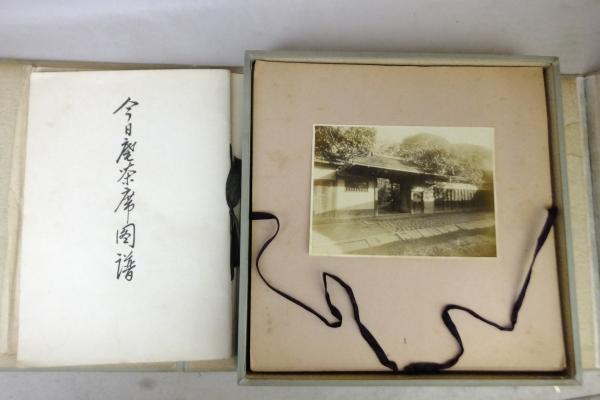 今日庵茶席図譜